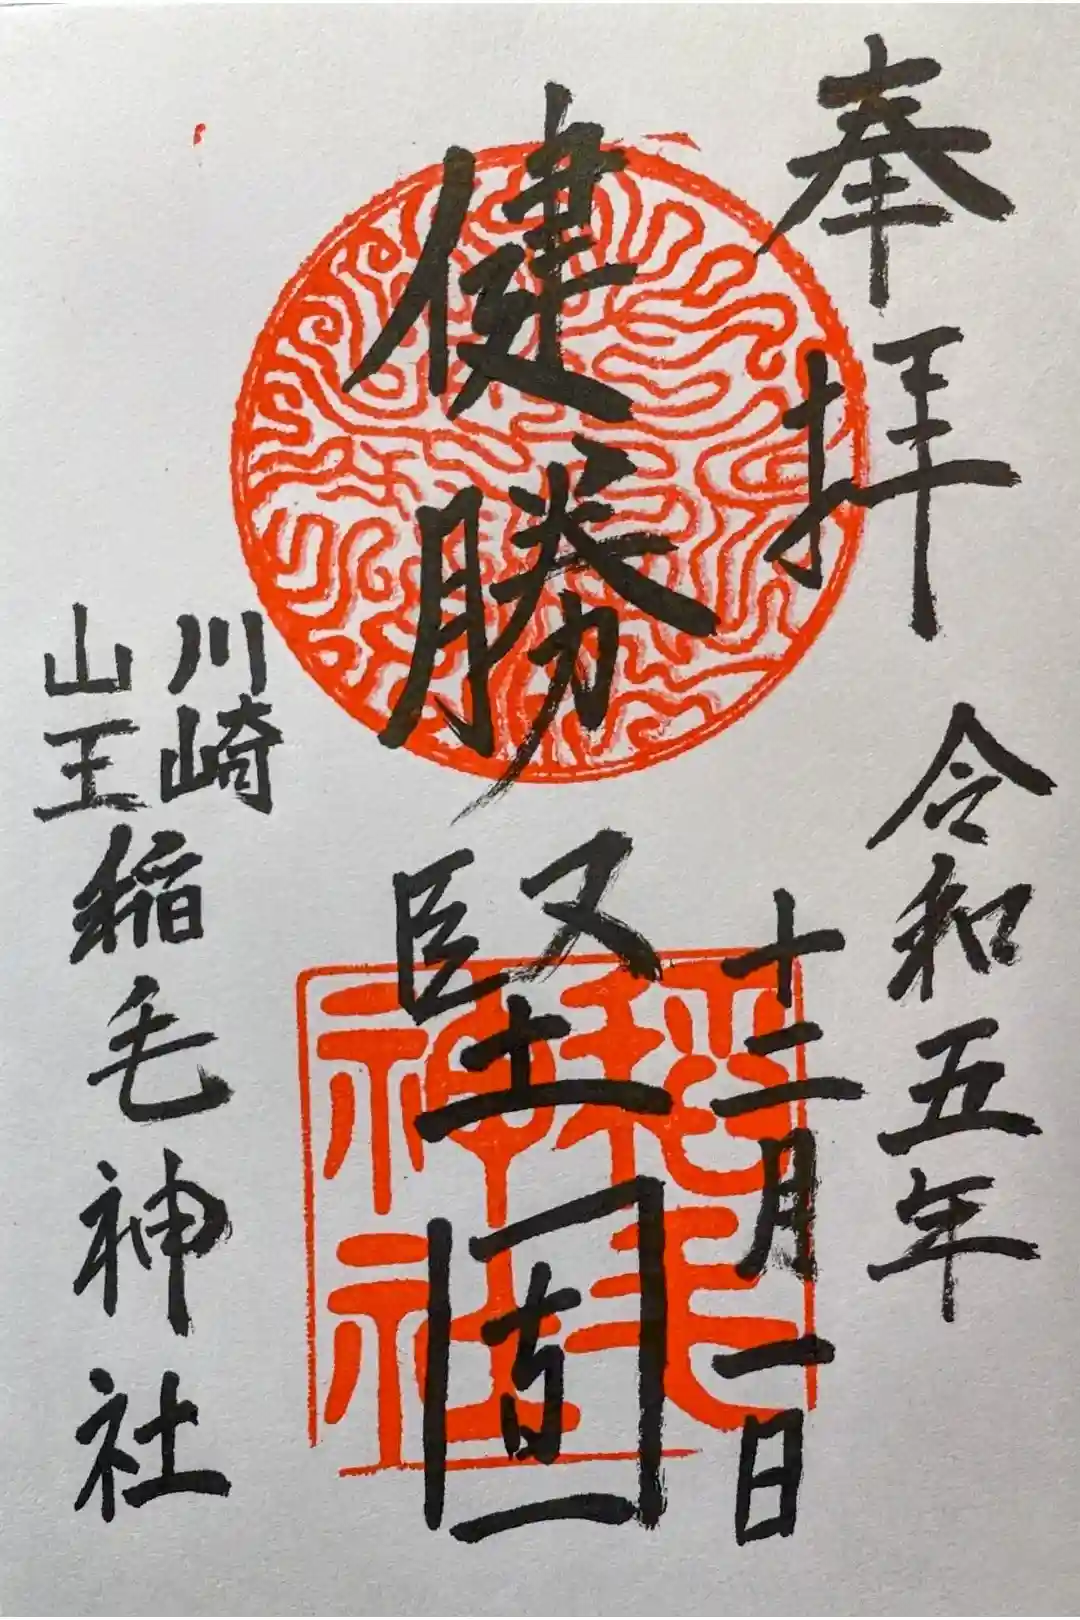 奉拝
令和五年
十二月一日
健勝堅固
稲毛
神社
川崎
山王
稲毛神社